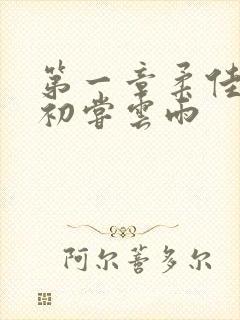 第一章柔佳
初尝云雨
阿尔萻多尔